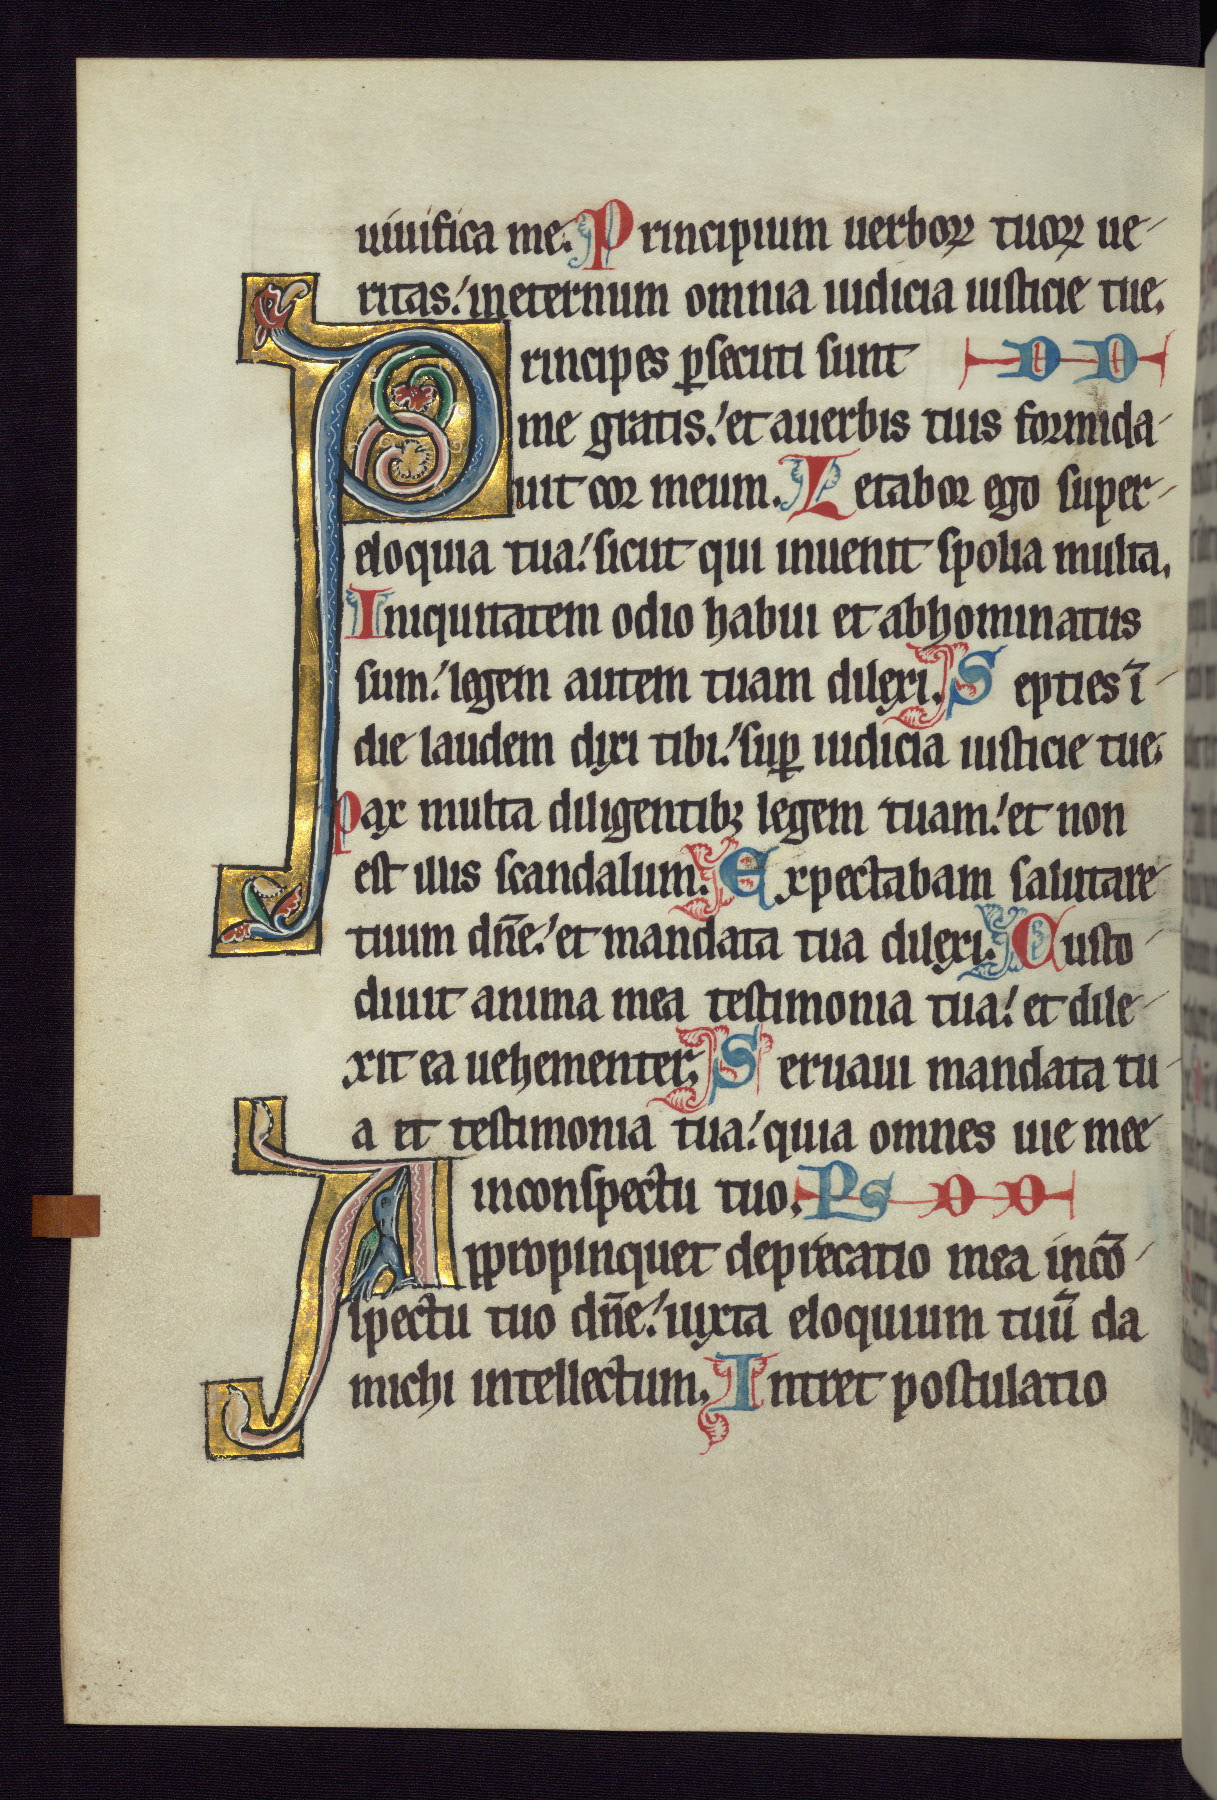 uiuifica me. Principium uerboꝝ tuoꝝ ue-
ritas: ineternum omnia iudicia iusticie tue.
Principes ꝑsecuti sunt
me gratis: et auerbis tuis formida-
uit cor meum. Letabor ego super-
eloquia tua: sicut qui inuenit spolia multa.
Iniquitatem odio habui et abhominatus
sum: legem autem tuam dilexi. Septies ī-
die laudem dixi tibi: suꝑ iudicia iusticie tue.
Pax multa diligentibꝫ legem tuam: et non
est illis scandalum. Expectabam salutare-
tuum dn̄e: et mandata tua dilexi. Custo-
diuit anima mea testimonia tua: et dile-
xit ea uehementer. Seruaui mandata tu-
a et testimonia tua: quia omnes uie mee
inconspectu tuo. Ps
Appropinquet deprecatio mea incō-
spectu tuo dn̄e: iuxta eloquium tuū da
michi intellectum. Intret postulatio